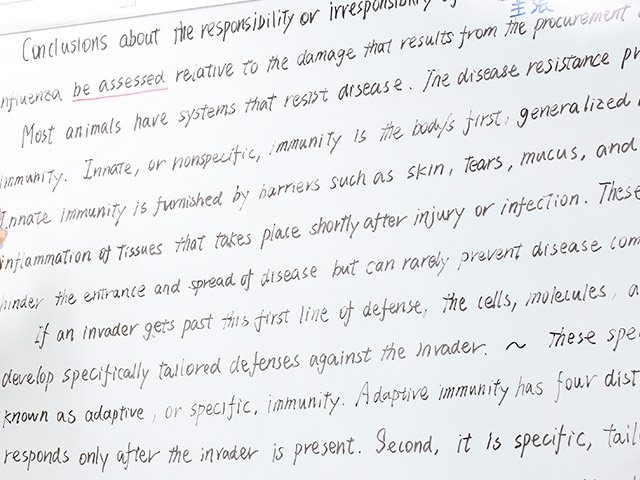 Conclusions about the responsibility or irresponsibility of
nfluenza be assessed relative to the damage that results from the procurement
Most animals have systems that resist disease. The disease resistance pr
immunity. Innate, or nonspecific, immunity is the body's first, generalized
Innate immunity is furnished by barriers such as skin, tears, mucus, and
inflammation of tissues that takes place shortly after injury or infection. These
hinder the entrance and spread of disease but can rarely prevent disease com
If an invader gets past this first line of defense, the cells, molecules, a
develop specifically tailored defenses against the invader. ~ These spe
known as adaptive, or specific, immunity. Adaptive immunity has four dist
responds only after the invader is present. Second, it is specific, tail